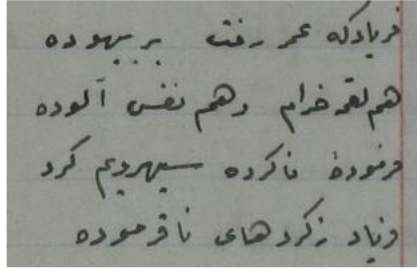 فریاد که عمر رفت بر بیهوده
هم لقمه حرام و هم نفس آلوده
فرمودهٔ ناکرده سیهرویم کرد
فریاد ز کردهای نافرموده